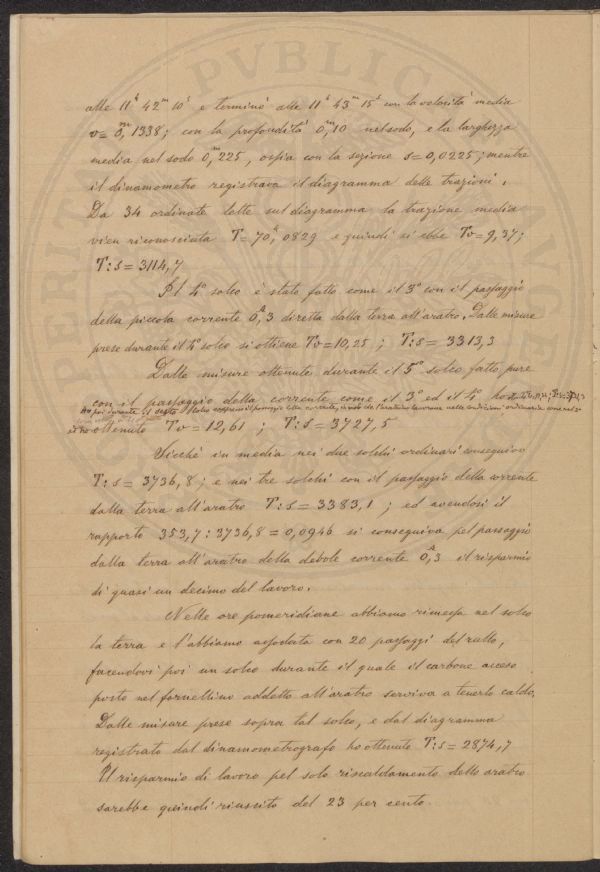 alle 11ʰ 42ᵐ 10ˢ e terminò alle 11ʰ 43ᵐ 15ˢ con la velocità media
v = 0,ᵐ1338; con la profondità 0,ᵐ10 nel sodo, e la larghezza
media nel sodo 0,ᵐ225, ossia con la sezione s = 0,0225; mentre
il dinamometro registrava il diagramma delle trazioni.
Da 34 ordinate lette sul diagramma la trazione media
vien riconosciuta T = 70,ᵏ0829 e quindi si ebbe Tv = 9,37;
T:s = 3114,7
Il 4° solco è stato fatto come il 3° con il passaggio
della piccola corrente 0,ᴬ3 diretta dalla terra all'aratro. Dalle misure
prese durante il 4° solco si ottiene Tv = 10,25; T:s = 3313,3
Dalle misure ottenute durante il 5° solco fatto pure
con il passaggio della corrente come il 3° ed il 4° ho
Ho poi durante il sesto solco soppresso il passaggio della corrente, in modo che l'aratro lavorava nelle condizioni ordinarie come nel 2°
ottenuto Tv = 12,61; T:s = 3727,5
Sicchè in media nei due solchi ordinari conseguivo
T:s = 3736,8; e nei tre solchi con il passaggio della corrente
dalla terra all'aratro T:s = 3383,1; ed avendosi il
rapporto 353,7 : 3736,8 = 0,0946 si conseguiva pel passaggio
dalla terra all'aratro della debole corrente 0,ᴬ3 il risparmio
di quasi un decimo del lavoro.
Nelle ore pomeridiane abbiamo rimessa nel solco
la terra e l'abbiamo assodata con 20 passaggi del rullo,
facendovi poi un solco durante il quale il carbone acceso
posto nel fornellino addetto all'aratro serviva a tenerlo caldo.
Dalle misure prese sopra tal solco, e dal diagramma
registrato dal dinamometrografo ho ottenuto T:s = 2874,7
Il risparmio di lavoro pel solo riscaldamento dello aratro
sarebbe quindi riuscito del 23 per cento.
PVBLIC